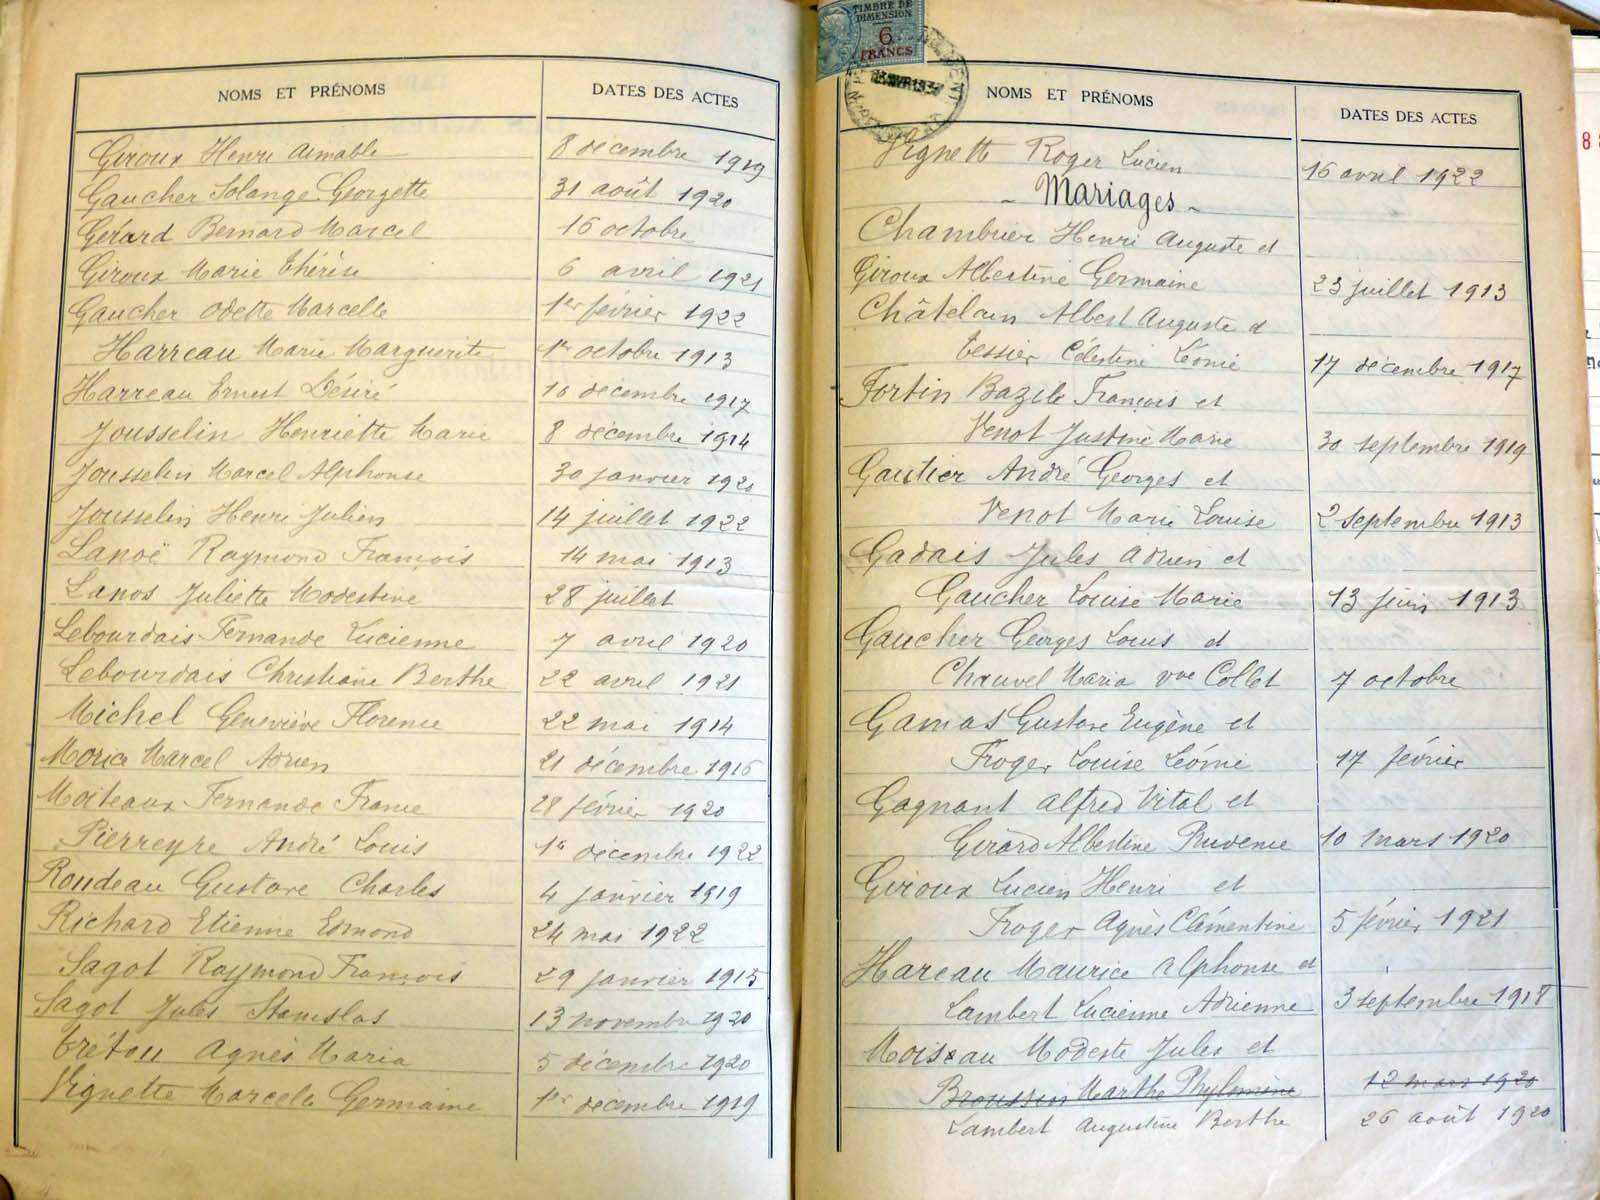 NOMS ET PRÉNOMS DATES DES ACTES
Giroux Henri Aimable 8 décembre 1919
Gaucher Solange Georgette 31 août 1920
Gérard Bernard Marcel 16 octobre
Giroux Marie Thérèse 6 avril 1921
Gaucher Odette Marcelle 1er février 1922
Harreau Marie Marguerite 1er octobre 1913
Harreau Ernest Désiré 16 décembre 1917
Jousselin Henriette Marie 8 décembre 1914
Jousselin Marcel Alphonse 30 janvier 1920
Jousselin Henri Julien 14 juillet 1922
Lanoë Raymond François 14 mai 1913
Lanos Juliette Modestine 28 juillet
Lebourdais Fernande Lucienne 7 avril 1920
Lebourdais Christiane Berthe 22 avril 1921
Michel Geneviève Florence 22 mai 1914
Morice Marcel Adrien 21 décembre 1916
Moiteaux Fernande France 28 février 1920
Pierreyre André Louis 1er décembre 1922
Rondeau Gustave Charles 4 janvier 1919
Richard Etienne Edmond 24 mai 1922
Sagot Raymond François 29 janvier 1915
Sagot Jules Stanislas 13 novembre 1920
Crétou Agnès Maria 5 décembre 1920
Vignette Marcelle Germaine 1er décembre 1919
TIMBRE DE
DIMENSION
6
FRANCS
NOMS ET PRÉNOMS DATES DES ACTES
Vignette Roger Lucien 16 avril 1922
- Mariages -
Chambrier Henri Auguste et
Giroux Albertine Germaine 23 juillet 1913
Châtelain Albert Auguste et
Tessier Célestine Léonie 17 décembre 1917
Fortin Bazile François et
Venot Justine Marie 30 septembre 1919
Gautier André Georges et
Venot Marie Louise 2 septembre 1913
Gadais Jules Adrien et
Gaucher Louise Marie 13 juin 1913
Gaucher Georges Louis et
Chauvel Maria vve Collet 7 octobre
Gamas Gustave Eugène et
Froger Louise Léonie 17 février
Gagnant Alfred Vital et
Girard Albertine Prudence 10 mars 1920
Giroux Lucien Henri et
Froger Agnès Clémentine 5 février 1921
Hareau Maurice Alphonse et
Lambert Lucienne Adrienne 3 septembre 1918
Moiseau Modeste Jules et
Broussin Marthe Phylomène 12 mars 1920
Lambert Augustine Berthe 26 août 1920